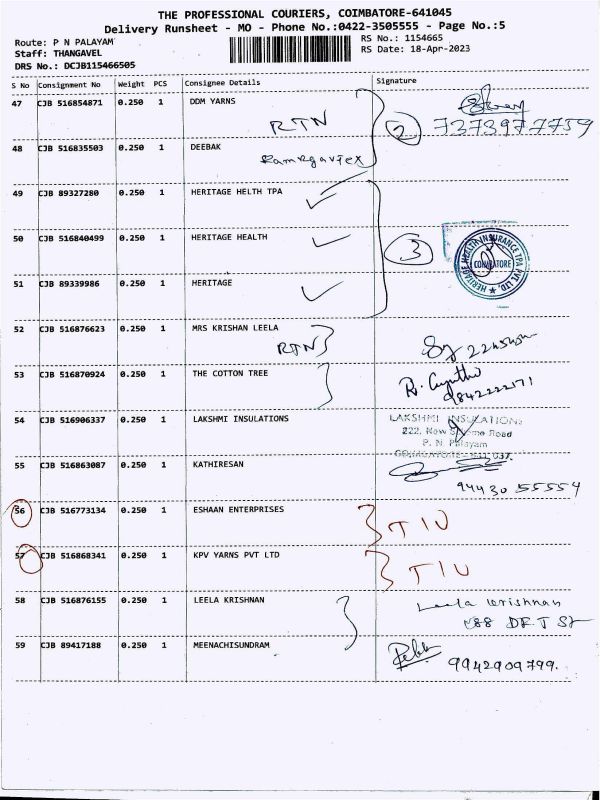 THE PROFESSIONAL COURIERS, COIMBATORE-641045
Delivery Runsheet - MO - Phone No.:0422-3505555 - Page No.:5
Route: P N PALAYAM
RS No.: 1154665
Staff: THANGAVEL
RS Date: 18-Apr-2023
DRS No.: DCJB115466505
S No Consignment No Weight PCS Consignee Details Signature
47 CJB 516854871 0.250 1 DDM YARNS
RTN 2 7373977759
48 CJB 516835503 0.250 1 DEEBAK
49 CJB 89327280 0.250 1 HERITAGE HELTH TPA
50 CJB 516840499 0.250 1 HERITAGE HEALTH
3 HERITAGE HEALTH INSURANCE TPA PVT. LTD.
COIMBATORE
51 CJB 89339986 0.250 1 HERITAGE
52 CJB 516876623 0.250 1 MRS KRISHAN LEELA
RTN
53 CJB 516870924 0.250 1 THE COTTON TREE
9842222171
54 CJB 516906337 0.250 1 LAKSHMI INSULATIONS LAKSHMI INSULATIONS
222, New Road
P. N. Palayam
COIMBATORE - 641 037.
55 CJB 516863087 0.250 1 KATHIRESAN
94430 55554
56 CJB 516773134 0.250 1 ESHAAN ENTERPRISES
TIU
57 CJB 516868341 0.250 1 KPV YARNS PVT LTD
TIU
58 CJB 516876155 0.250 1 LEELA KRISHNAN Leela krishnan
59 CJB 89417188 0.250 1 MEENACHISUNDRAM
9942909799.